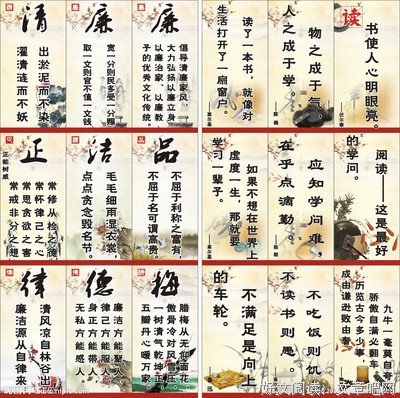 清
出淤泥而不染
濯清涟而不妖
廉
宽一分则民多受一分赐
取一文则官不值一文钱
廉
倡导清廉家风
大力弘扬以廉立身
以廉治家、以廉教
子的优秀文化传统。
读了一本书，就像对
生活打开了一扇窗户。
物之成于气，
人之成于学。
读
书使人心明眼亮。
正
正能树廉
常修从检之德
常怀律己之心
常思贪欲之害
常戒非分之想
洁
毛毛细雨湿衣裳
点点贪念毁名节。
品
不屈于利称之富有，
不屈于名可谓高贵。
如果不想在世界上
虚度一生，那就要
学习一辈子。
应知学问难，
在乎点滴勤。
阅读——这是最好
的学问。
律
清风凉自林谷出
廉洁源从自律来
德
廉洁方能聚人
身正方能带人
无私方能感人
梅
腊梅从无媚面花
傲骨冷对风雪压
一树清气乾坤正
五瓣丹心暖万家
不满足是向上
的车轮。
不吃饭则饥，
不读书则愚。
九牛一毫莫自夸，
骄傲自满必翻车。
历览古今多少事，
成由谦逊败由奢。
好文阅读-文章吧网